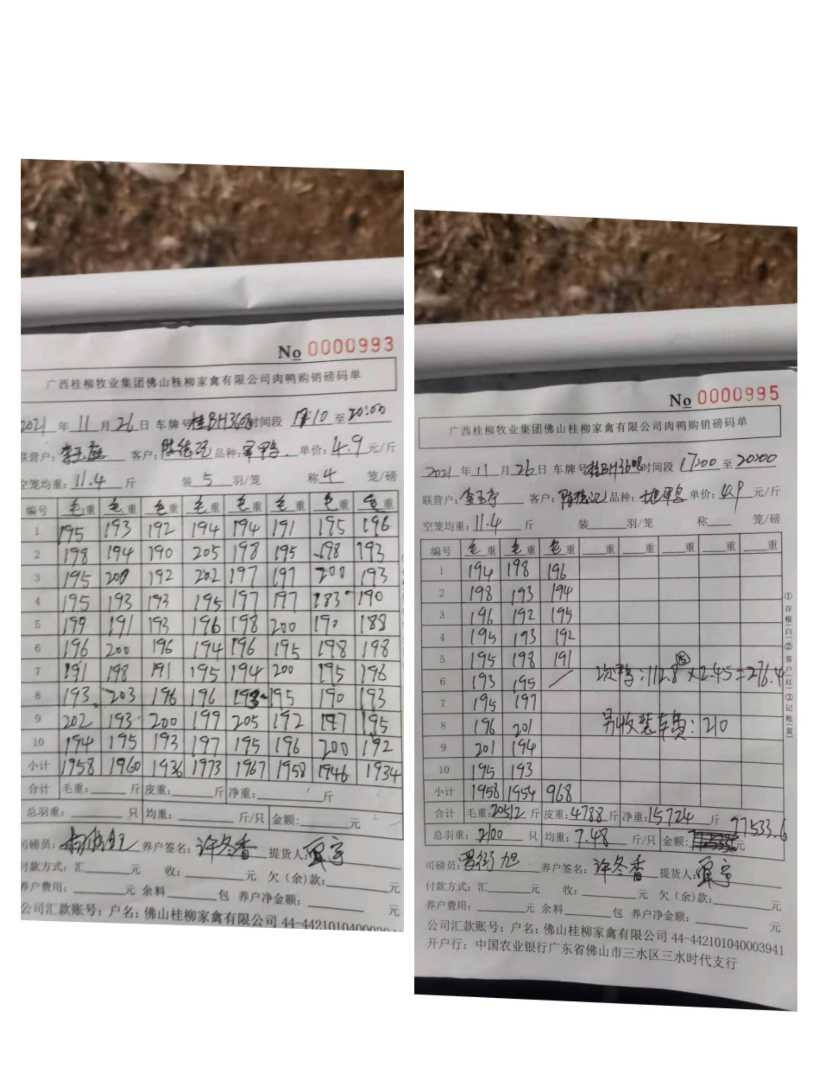 No 0000993
广西桂柳牧业集团佛山桂柳家禽有限公司肉鸭购销磅码单
2021 年 11 月 26 日 车牌号 时间段 至 20:00
联营户: 客户: 品种: 单价: 4.9 元/斤
空笼均重: 11.4 斤 装 5 羽/笼 称 4 笼/磅
编号 毛重 毛重 毛重 毛重 毛重 毛重 毛重 毛重
1 195 193 192 194 194 191 195 196
2 198 194 190 205 198 195 198 193
3 195 200 192 202 197 197 200 193
4 195 193 193 195 197 197 183 190
5 199 191 193 196 198 200 190 188
6 196 200 196 194 196 195 198 198
7 191 198 191 195 194 200 195 196
8 193 203 196 196 193 195 190 193
9 202 193 200 199 205 192 197 195
10 194 195 193 197 195 196 200 192
小计 1958 1960 1936 1973 1967 1958 1946 1934
合计 毛重: 斤 皮重: 斤 净重: 斤
总羽重: 只 均重: 斤/只 金额: 元
司磅员: 养户签名: 许冬香 提货人:
付款方式: 汇 元 收: 元 欠(余)款: 元
养户费用: 元 余料 包 养户净金额: 元
公司汇款账号: 户名: 佛山桂柳家禽有限公司 44-442101040
No 0000995
广西桂柳牧业集团佛山桂柳家禽有限公司肉鸭购销磅码单
2021 年 11 月 26 日 车牌号 时间段 17:00 至 20:00
联营户: 客户: 品种: 单价: 4.9 元/斤
空笼均重: 11.4 斤 装 羽/笼 称 笼/磅
编号 毛重 毛重 毛重 重 重 重 重 重
1 194 198 196
2 198 193 194
3 196 192 195
4 195 193 192
5 195 198 191
6 193 195 /
次鸭: 112.8 x2.45=276.4
7 195 197
8 196 201
另收装车费: 210
9 201 194
10 195 193
小计 1958 1954 968
合计 毛重: 20512 斤 皮重: 4788 斤 净重: 15724 斤
77533.6
总羽重: 2100 只 均重: 7.48 斤/只 金额: 元
司磅员: 养户签名: 许冬香 提货人:
付款方式: 汇 元 收: 元 欠(余)款: 元
养户费用: 元 余料 包 养户净金额: 元
公司汇款账号: 户名: 佛山桂柳家禽有限公司 44-442101040003941
开户行: 中国农业银行广东省佛山市三水区三水时代支行
①存根(白)②客户(红)③记账(黄)